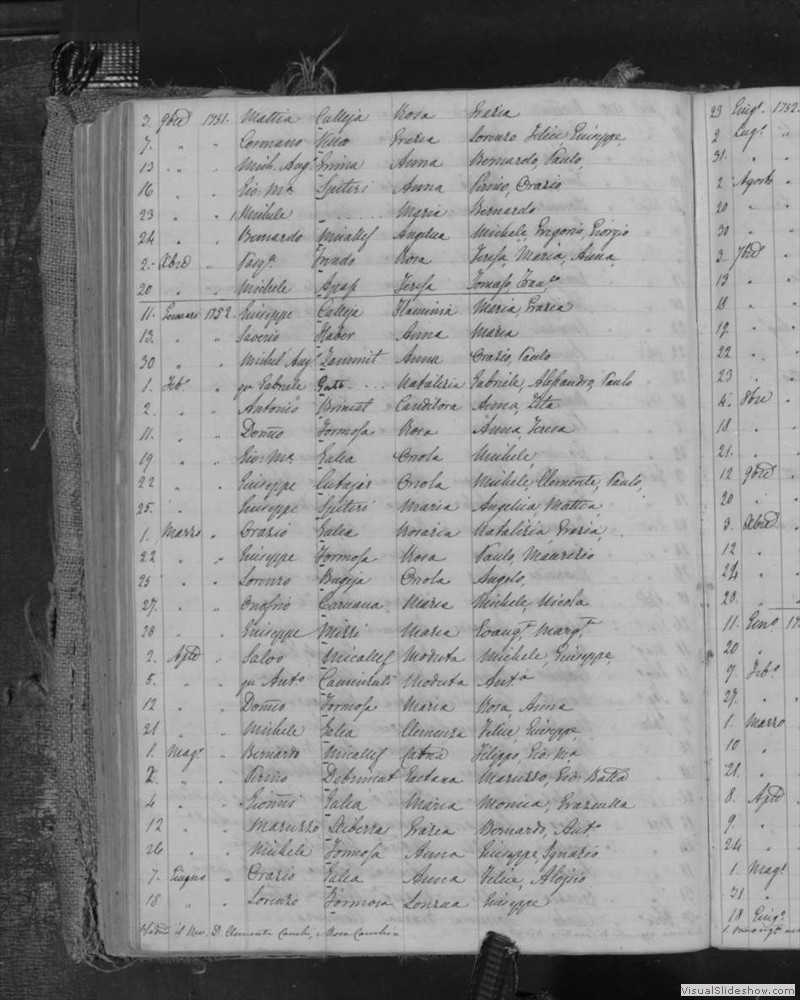 3. 9bre 1751. Mattia Calleja Rosa Grazia
7. " " Germano Vella Grazia Lorenzo Felice Giuseppe,
13 " " Mich. Ang.º Grima Anna Bernardo, Paulo,
16 " " Gio: Mª Spiteri Anna Pirino, Orazio
23 " " Michele . . . . . Maria Bernardo
24 " " Bernardo Micallef Angelica Michele, Gregorio, Giorgio
2. Xbre " Rosa Teresa, Maria, Anna
20 " " Michele Agap Teresa Tomaso,
11. Gennaro 1752. Giuseppe Calleja Flaminia Maria, Grazia
13. " " Saverio Haber Anna Maria
30 " " Michel'Ang.º Zammit Anna Orazio, Paulo
1. Feb.º " qu Gabriele . . . Natalizia Gabriele, Alessandro, Paulo
2. " " Antonio Brincat Canditora Anna, Zita
11. " " Domco Formosa Rosa Anna, Teresa
19 " " Gio: Mª Galea Orsola Michele,
22 " " Giuseppe Cutajar Orsola Michele, Clemente, Paulo,
25. " " Giuseppe Spiteri Maria Angelica, Mattea
1. Marzo " Orazio Galea Rosaria Natalizia Grazia
22 " " Giuseppe Formosa Rosa Paulo, Maurizio
25 " " Lorenzo Bugeja Orsola Angelo,
27. " " Onofrio Caruana Maria Michele, Nicola
28 " " Giuseppe Mizzi Maria Evangta Margta
2. Aple " Salvo Micallef Moduta Michele, Giuseppe,
5. " " qu Anto Camenzuli Moduta Anta
12 " " Domco Formosa Maria Rosa, Anna
21 " " Michele Galea Clemenza Felice, Giuseppe
1. Magº " Bernardo Micallef Catna Filippo, Gio: Mª
2. " " Pirino Debrincat Gaetana Maruzzo, Gio: Batta
4 " " Gionni Galea Maria Monica, Graziulla
12 " " Maruzzo Xiberra Grazia Bernardo, Anto
26 " " Michele Formosa Anna Giuseppe, Ignazio
7. Giugno " Orazio Galea Anna Felice, Aloisio
18 " " Lorenzo Formosa Lonzua Giuseppe
il Rev. D. Clemente Rosa
23 Giugº 1752.
2 Lugº "
31. " "
2 Agosto "
20 " "
30 " "
3. 7bre "
13 "
18 "
19. "
22 "
23 "
4. 8bre "
18 "
21. "
12 9bre "
20 "
3. Xbre "
12 "
24 "
28. "
11. Genº
20 "
7. Febº
27. "
1. Marzo
10 "
21. "
8. Aple
9. "
24 "
1. Magº
31 "
18 Giugº
VisualSlideshow.com